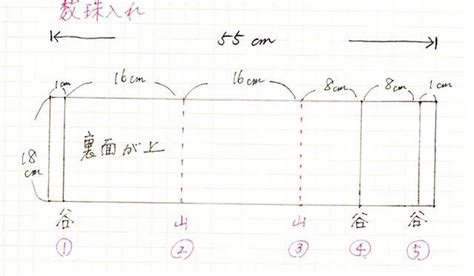 数珠入れ
55cm
1cm 16cm 16cm 8cm 8cm 1cm
18cm
裏面が上
谷 山 山 谷 谷
① ② ③ ④ ⑤